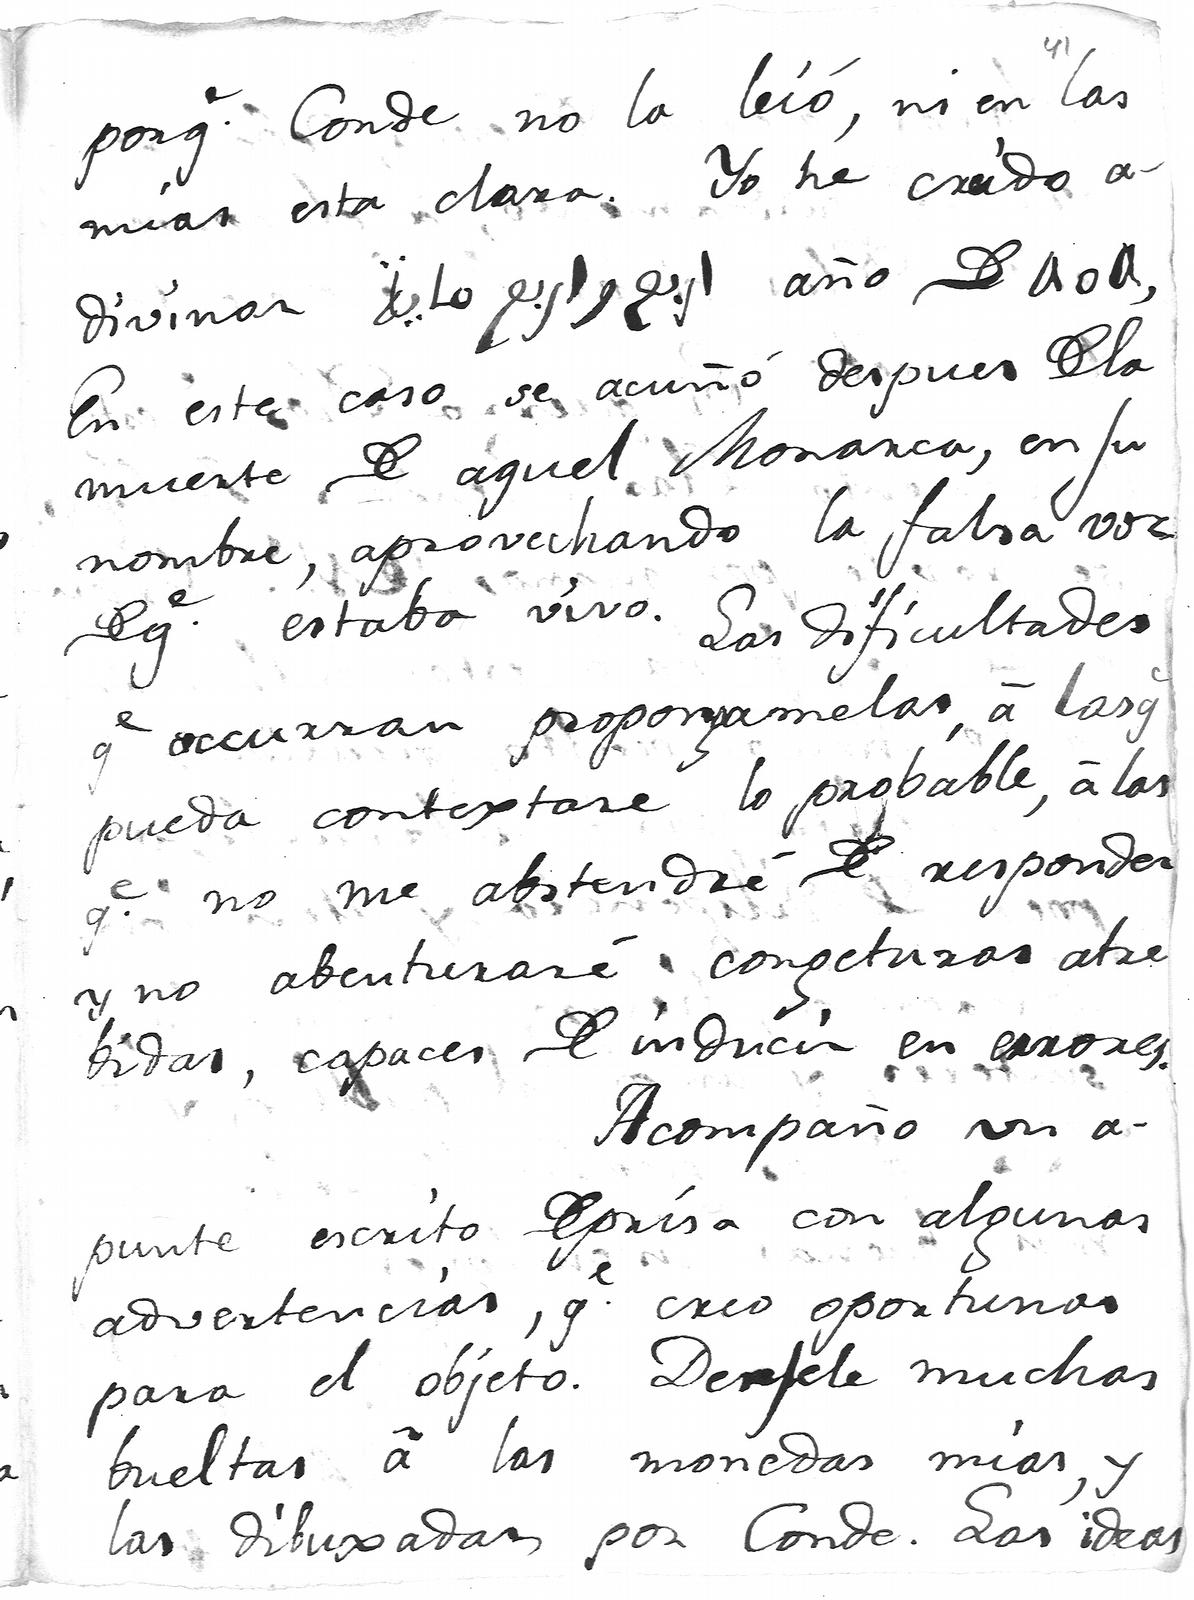 41
porq.e Conde no la leió, ni en las
mias esta clara. Yo he creido a-
divinar año De
En este caso se acuñó despues Dela
muerte De aquel Monarca, en su
nombre, aprovechando la falsa voz
Deq.e estaba vivo. Las dificultades
q.e occurran propongamelas, á lasq.e
pueda contextaré lo probable, á las
q.e no me abstendré De responder
y no abenturaré congeturas atre
bidas, capaces De inducir en errores.
Acompaño un a-
punte escrito Deprisa con algunas
advertencias, q.e creo oportunas
para el objeto. Densele muchas
bueltas á las monedas mias, y
las dibuxadas por Conde. Las ideas